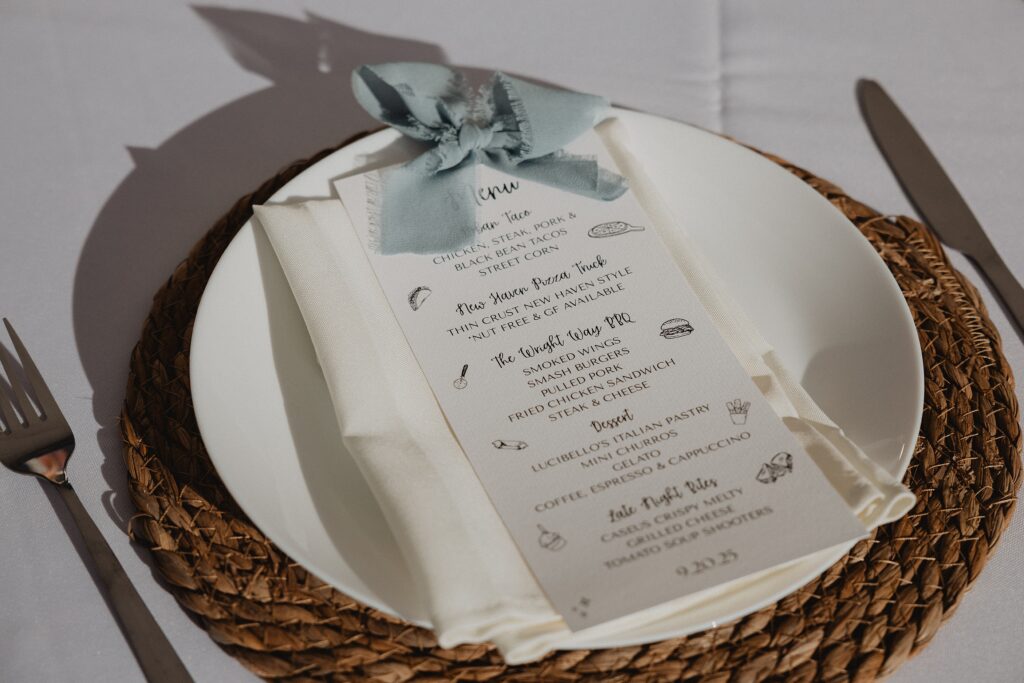 Menu
Taco
CHICKEN, STEAK, PORK &
BLACK BEAN TACOS
STREET CORN
New Haven Pizza Truck
THIN CRUST NEW HAVEN STYLE
*NUT FREE & GF AVAILABLE
The Wright Way BBQ
SMOKED WINGS
SMASH BURGERS
PULLED PORK
FRIED CHICKEN SANDWICH
STEAK & CHEESE
Dessert
LUCIBELLO'S ITALIAN PASTRY
MINI CHURROS
GELATO
COFFEE, ESPRESSO & CAPPUCCINO
Late Night Bites
CASEUS CRISPY MELTY
GRILLED CHEESE
TOMATO SOUP SHOOTERS
9.20.25